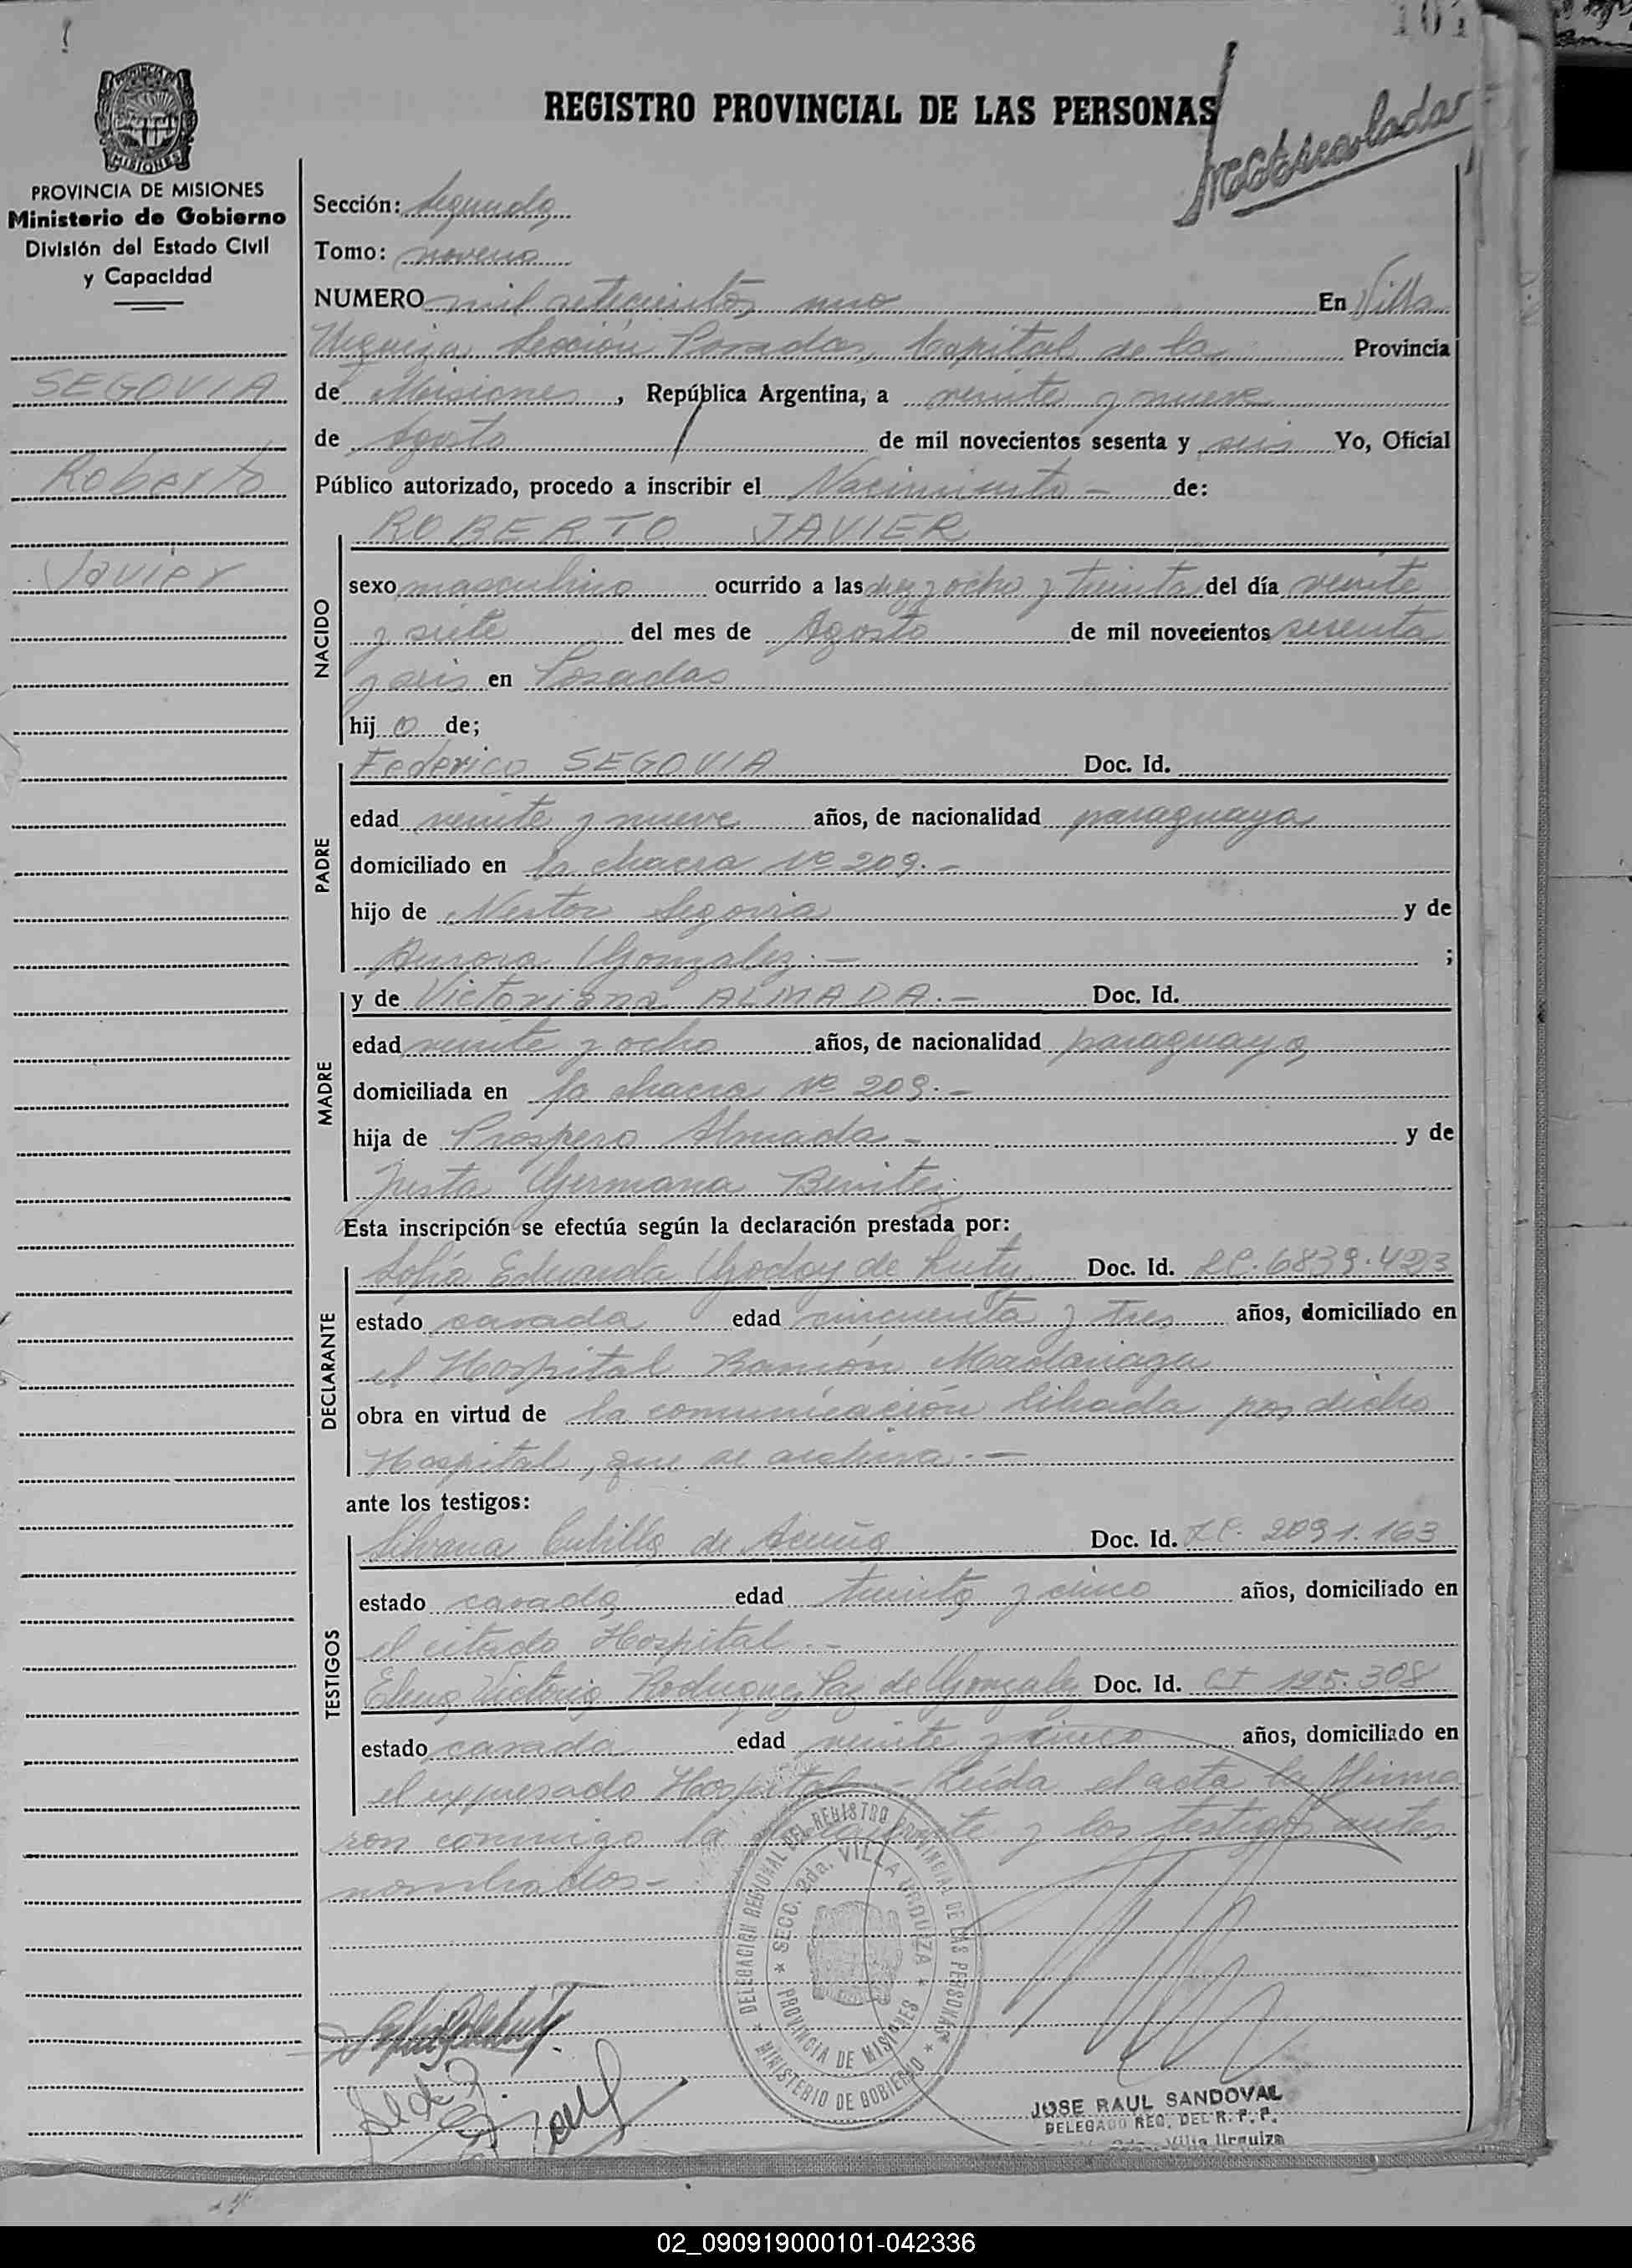 101
REGISTRO PROVINCIAL DE LAS PERSONAS
MISIONES
PROVINCIA DE MISIONES
Ministerio de Gobierno
División del Estado Civil
y Capacidad
SEGOVIA
Roberto
Javier
Sección: Segunda
Tomo: noveno
NUMERO mil setecientos uno En Villa
Urquiza Sección Posadas, Capital de la Provincia
de Misiones, República Argentina, a veinte y nueve
de Agosto de mil novecientos sesenta y seis Yo, Oficial
Público autorizado, procedo a inscribir el Nacimiento - de:
NACIDO
ROBERTO JAVIER
sexo masculino ocurrido a las diez y ocho y treinta del día veinte
y siete del mes de Agosto de mil novecientos sesenta
y seis en Posadas
hijo de;
PADRE
Federico SEGOVIA Doc. Id.
edad veinte y nueve años, de nacionalidad paraguaya
domiciliado en la chacra Nº 209.-
hijo de Nestor Segovia y de
Aurora Gonzalez.- ;
MADRE
y de Victoriana ALMADA.- Doc. Id.
edad veinte y ocho años, de nacionalidad paraguaya
domiciliada en la chacra Nº 209.-
hija de Prospero Almada - y de
Justa Germana Benitez
Esta inscripción se efectúa según la declaración prestada por:
DECLARANTE
Sofía Eduarda Godoy de Doc. Id. LC. 6839.423
estado casada edad cincuenta y tres años, domiciliado en
el Hospital Ramón Madariaga
obra en virtud de la comunicación librada por dicho
Hospital, que se archiva.-
ante los testigos:
TESTIGOS
Silvana de Acuña Doc. Id. LC. 2091.163
estado casada edad treinta y cinco años, domiciliado en
el citado Hospital.-
Elena Victoria Rodriguez Paz de Gonzalez Doc. Id. CI 195.308
estado casada edad veinte y cinco años, domiciliado en
el expresado Hospital.- Leída el acta la firma
ron conmigo la y los testigos antes
nombrados-
DELEGACION REGIONAL DEL REGISTRO PROVINCIAL DE LAS PERSONAS
SECC. 2da. VILLA URQUIZA
PROVINCIA DE MISIONES
MINISTERIO DE GOBIERNO
JOSE RAUL SANDOVAL
DELEGADO REG. DEL R. P. P.
Villa Urquiza
02_090919000101-042336